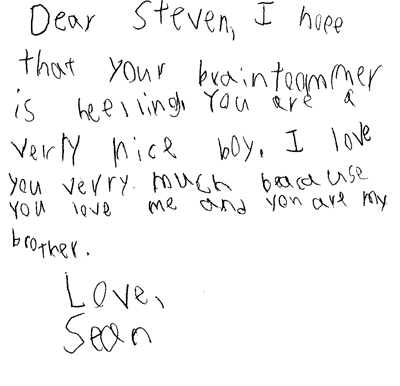 Dear Steven, I hope
that your braintoammer
is heeling. You are a
verry nice boy. I love
you verry much beacause
you love me and you are my
brother.
Love,
Sean